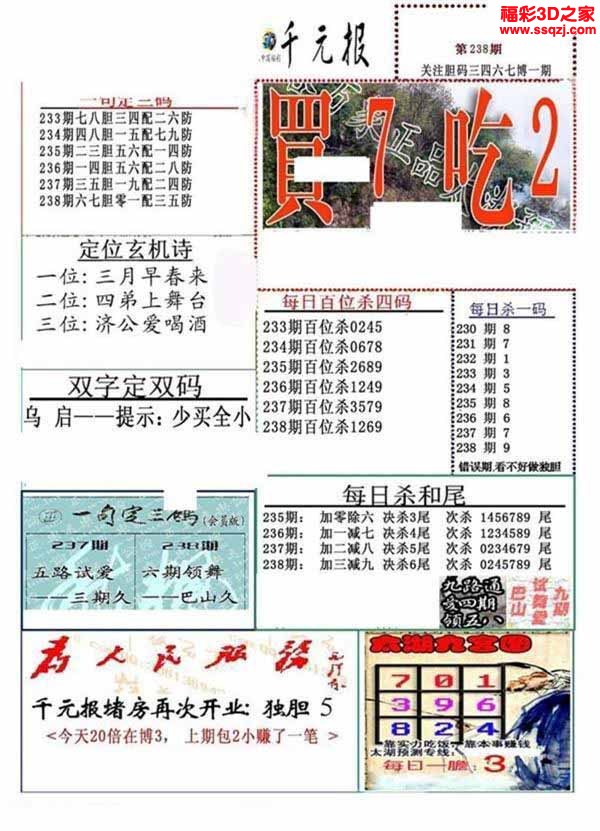 福彩3D之家
www.ssqzj.com
千元报
第238期
关注胆码三四六七博一期
一句定三码
233期七八胆三四配二六防
234期四八胆一五配七九防
235期二三胆五六配一四防
236期一四胆五六配二八防
237期三五胆一九配二四防
238期六七胆零一配三五防
買7吃2
定位玄机诗
一位: 三月早春来
二位: 四弟上舞台
三位: 济公爱喝酒
每日百位杀四码
233期百位杀0245
234期百位杀0678
235期百位杀2689
236期百位杀1249
237期百位杀3579
238期百位杀1269
每日杀一码
230 期 8
231 期 7
232 期 1
233 期 3
234 期 5
235 期 8
236 期 6
237 期 7
238 期 9
错误期,看不好做独胆
双字定双码
乌 启——提示: 少买全小
每日杀和尾
235期: 加零除六 决杀3尾 次杀 1456789 尾
236期: 加一减七 决杀4尾 次杀 1234589 尾
237期: 加二减八 决杀5尾 次杀 0234679 尾
238期: 加三减九 决杀6尾 次杀 0245789 尾
一句定三码(会员版)
237期 238期
五路试爱 六期领舞
——三期久 ——巴山久
九路通
爱四期
领五八
九期
试舞爱
巴山
为人民服务
千元报堵房再次开业: 独胆 5
<今天20倍在博3, 上期包2小赚了一笔 >
太湖九宫图
7 0 1
3 9 6
8 2 4
靠实力吃饭 靠本事赚钱
太湖预测专线:
每日一胆: 3